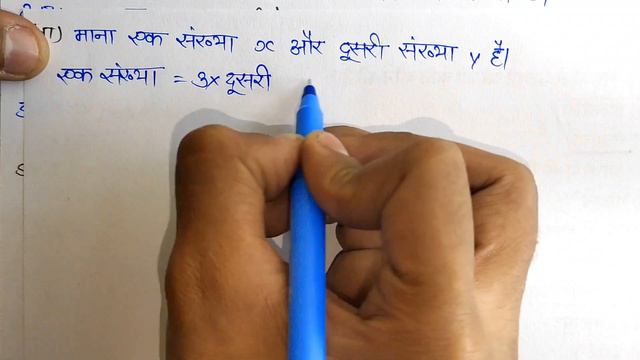 माना एक संख्या x और दूसरी संख्या y है।
एक संख्या = 3x दूसरी